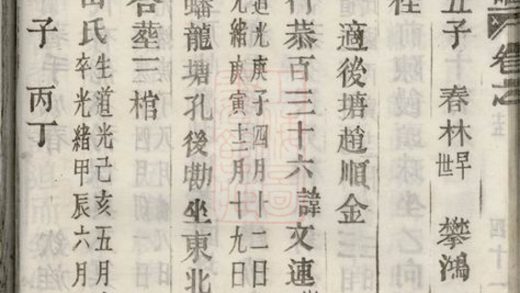 卷之
五子 春林早世 攀鴻
適後塘趙順金
行恭百三十六諱文連
道光庚子四月十二日
光緒庚寅十二月十九日
蟠龍塘孔後勘坐東北
合塟三棺
氏生道光己亥五月
卒光緒甲辰六月
子 丙丁